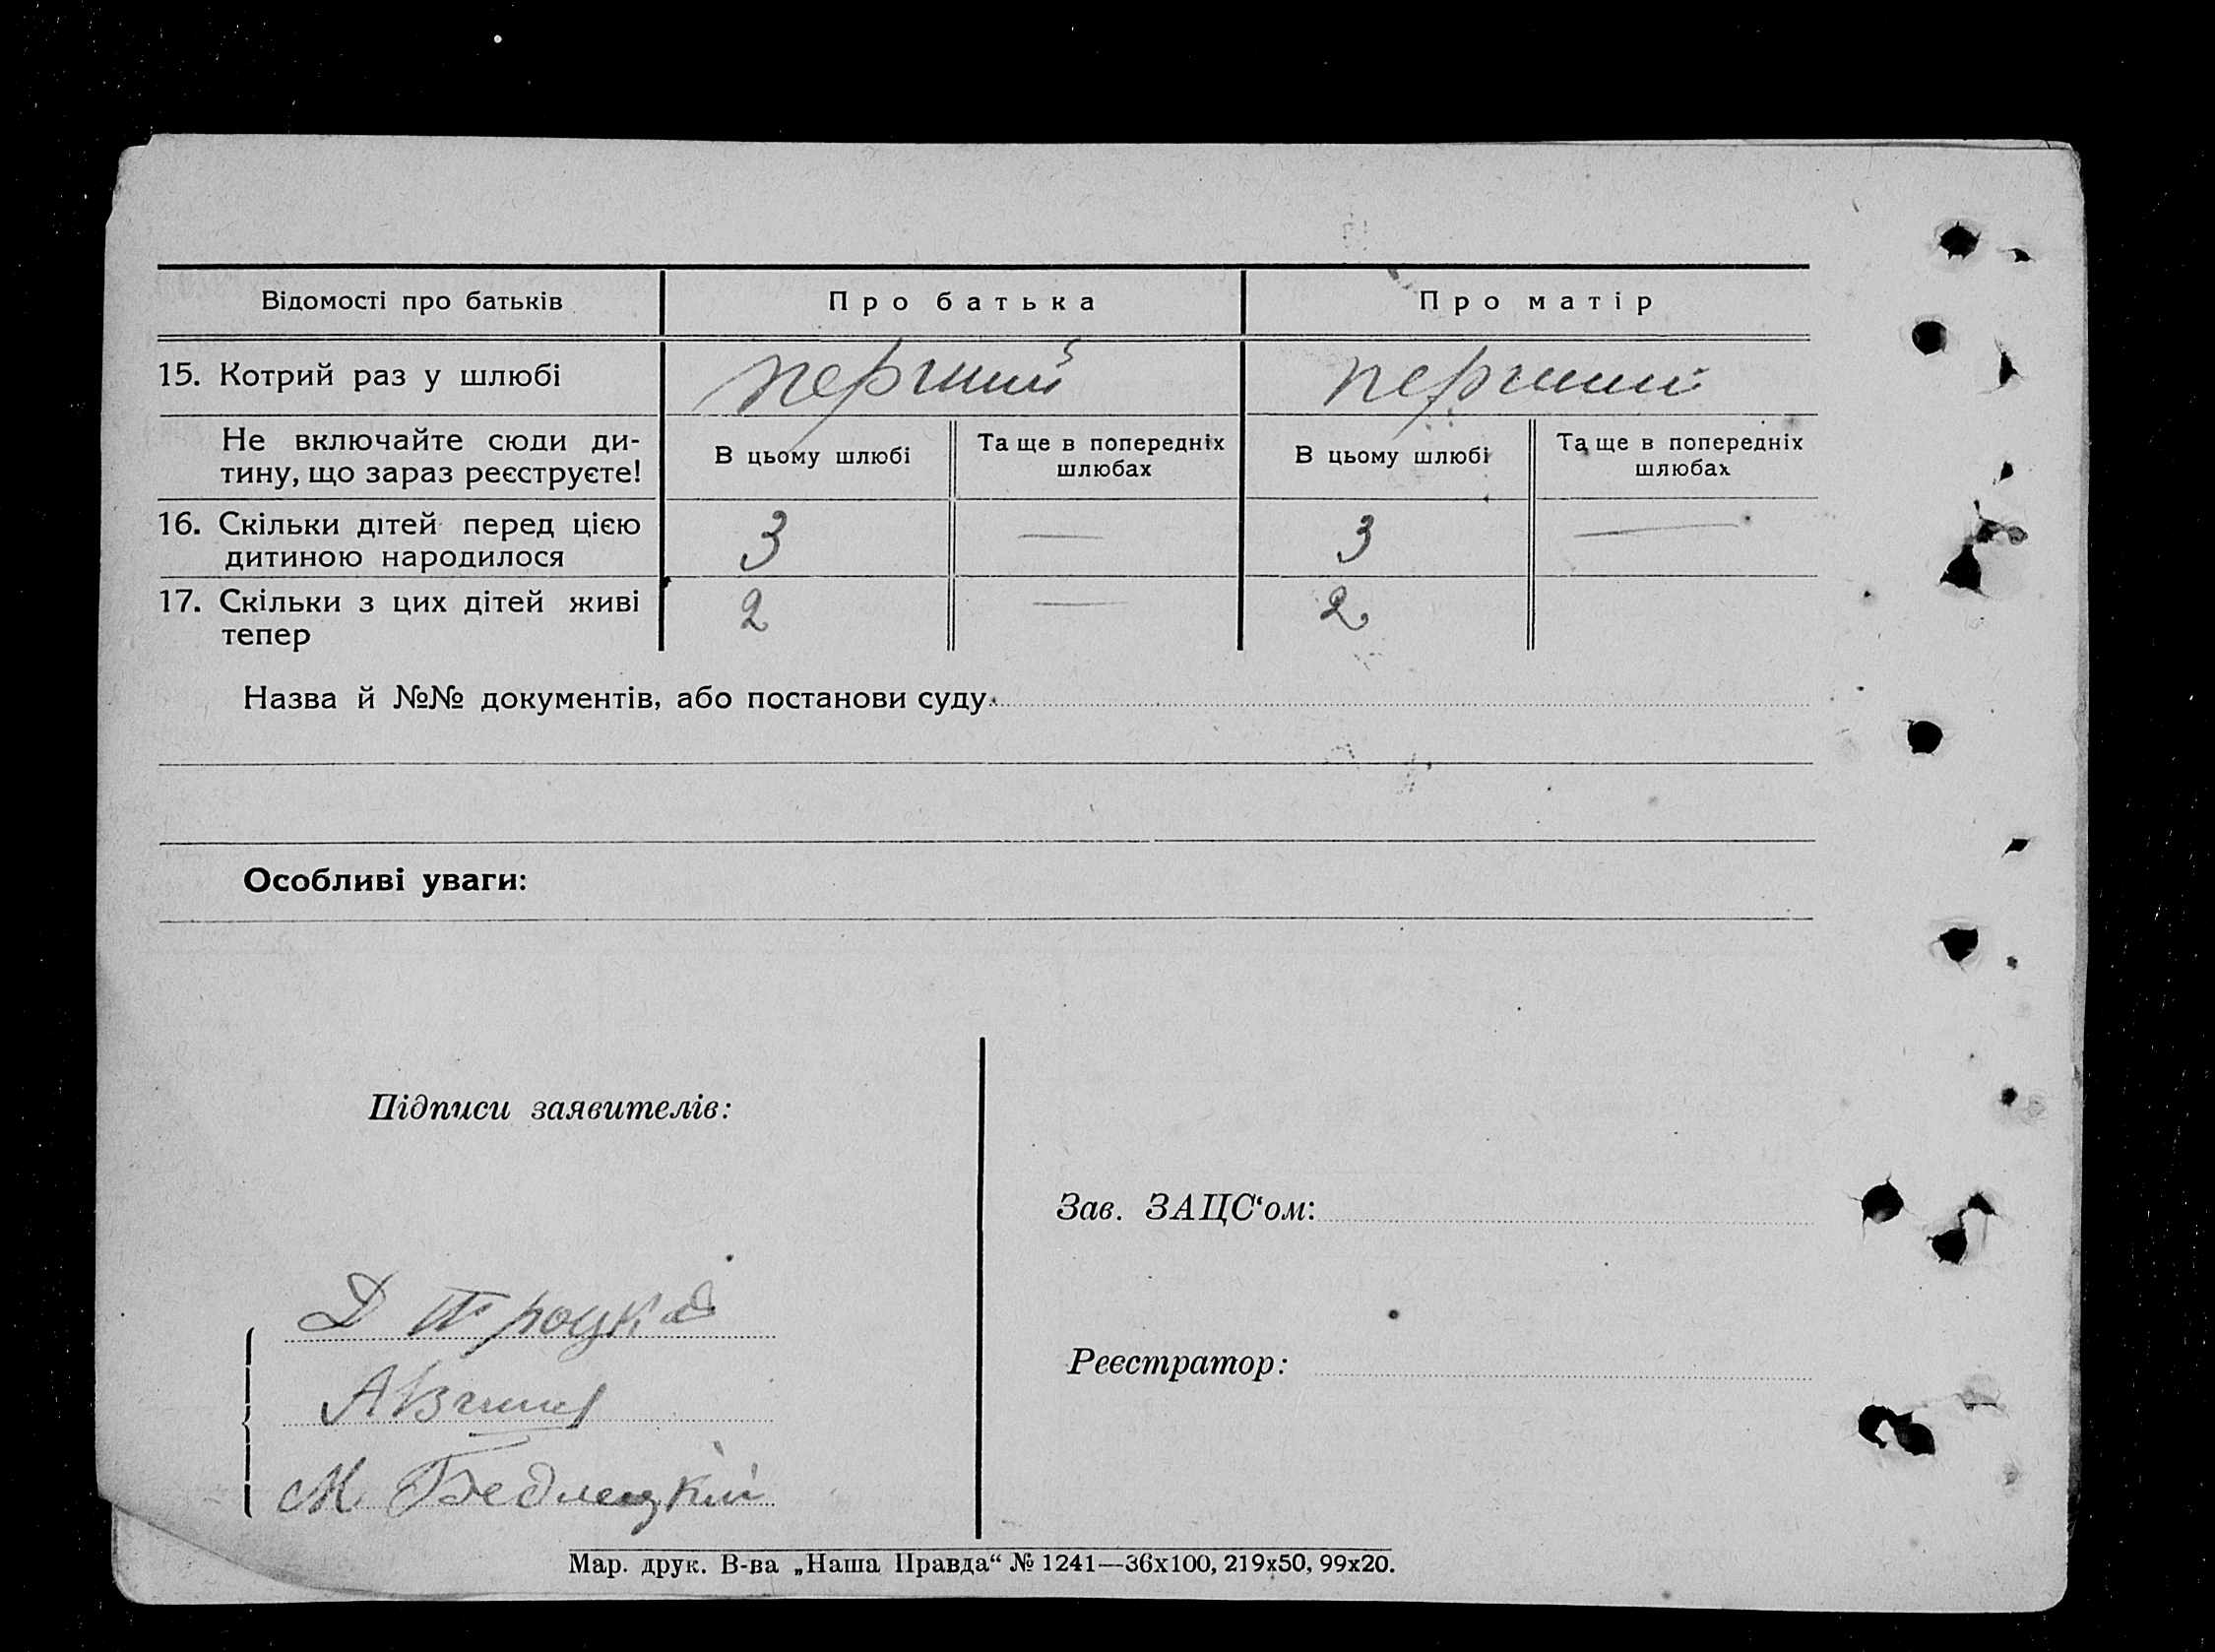 Відомості про батьків
Про батька
Про матір
15. Котрий раз у шлюбі
перший
перший
Не включайте сюди ди-
тину, що зараз реєструєте!
В цьому шлюбі
Та ще в попередніх
шлюбах
В цьому шлюбі
Та ще в попередніх
шлюбах
16. Скільки дітей перед цією
дитиною народилося
3
—
3
—
17. Скільки з цих дітей живі
тепер
2
—
2
Назва й №№ документів, або постанови суду
Особливі уваги:
Підписи заявителів:
Зав. ЗАЦС‘ом:
Д Троцкий
Реєстратор:
М. Бедлецкий
Мар. друк. В-ва „Наша Правда“ № 1241—36х100, 219х50, 99х20.